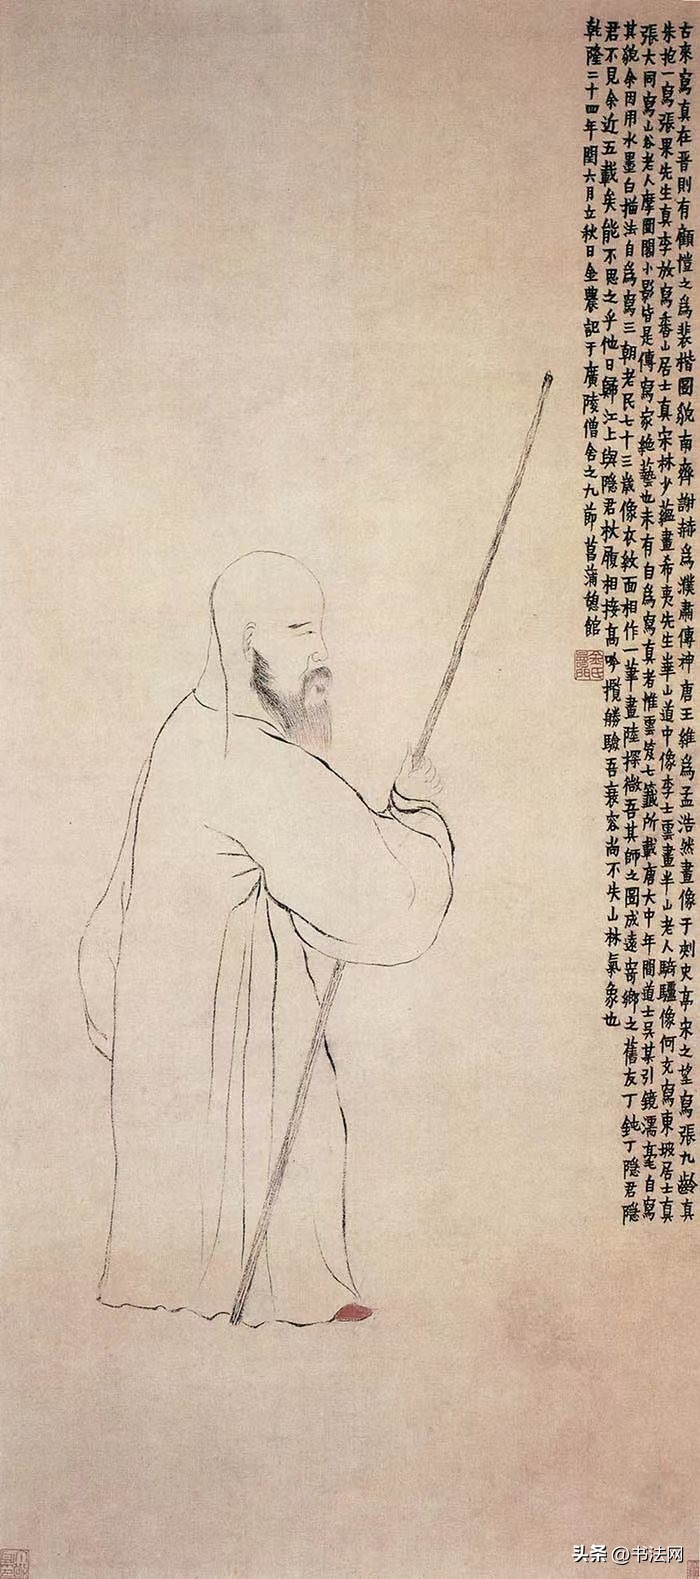 古來寫真在晉則有顧愷之爲裴楷圖貌南齊謝赫爲濮肅傳神唐王維爲孟浩然畫像于刺史亭宋之望寫張九齡真
朱抱一寫張果先生真李放寫香山居士真宋林少蘊畫希夷先生華山道中像李士雲畫半山老人騎驢像何充寫東坡居士真
張大同寫山谷老人摩圍閣小影皆是傳寫家絶藝也未有自爲寫真者惟雲笈七籤所載唐大中年間道士吴某引鏡濡毫自寫
其貌余因用水墨白描法自爲寫三朝老民七十三歲像衣紋面相作一筆畫陸探微吾其師之圖成遠寄鄉之舊友丁鈍丁隱君隱
君不見余近五載矣能不思之乎他日歸江上與隱君杖履相接高吟攬勝驗吾衰容尚不失山林氣象也
乾隆二十四年閏六月立秋日金農記于廣陵僧舍之九節菖蒲憩館
头条 @书法网